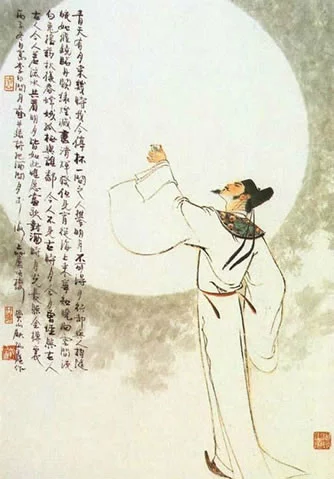 青天有月來幾時我今停杯一問之人攀明月不可得月行却與人相隨
皎如飛鏡臨丹闕綠煙滅盡清輝發但見宵從海上來寧知曉向雲間沒
白兔搗藥秋復春嫦娥孤棲與誰鄰今人不見古時月今月曾經照古人
古人今人若流水共看明月皆如此唯願當歌對酒時月光長照金樽裏
李白問月圖